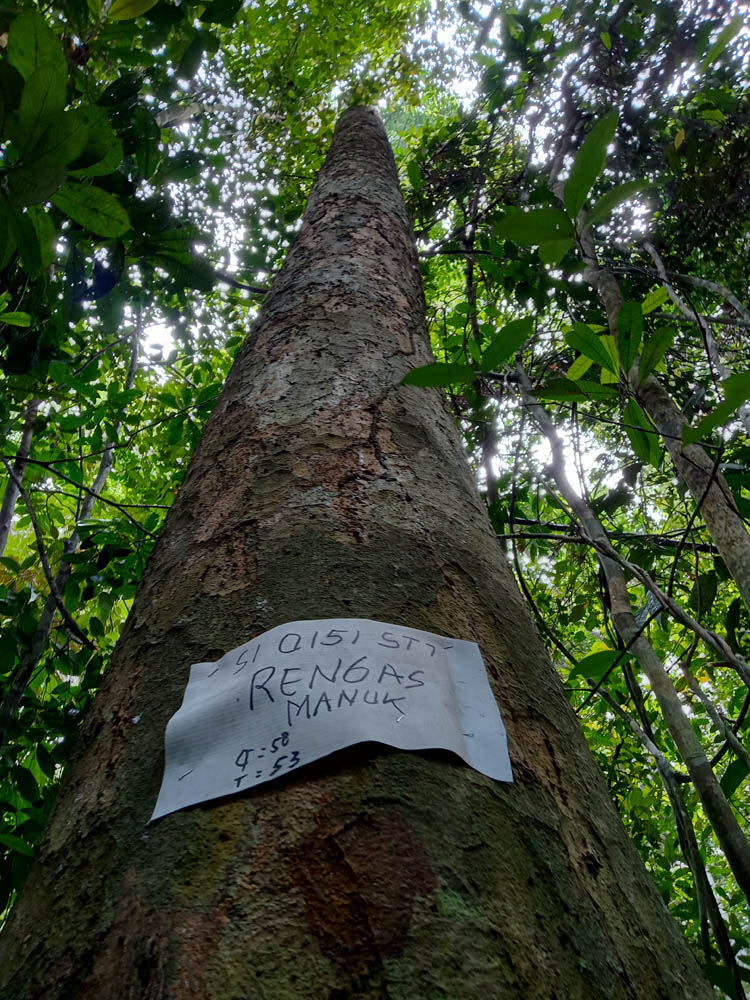 S1 Q151 ST7
RENGAS
MANUK
q=58
T=53